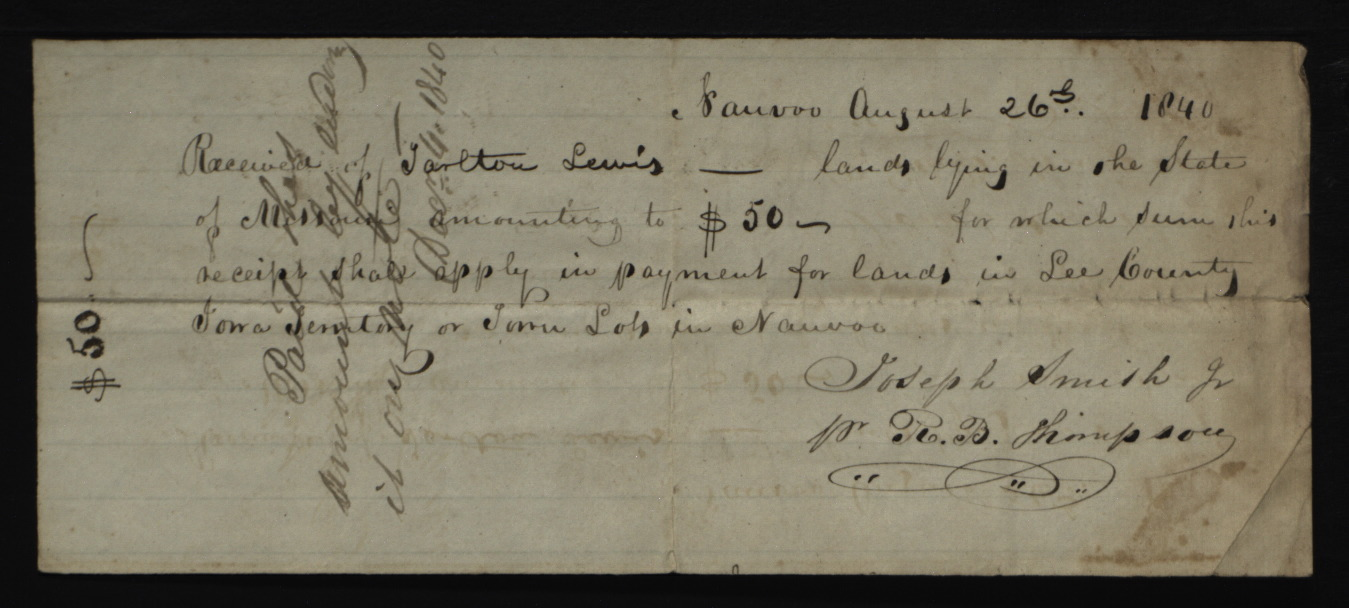 Nauvoo August 26th. 1840
Received of Tarlton Lewis — lands lying in the State
of Missouri amounting to $ 50 — for which sum this
receipt shall apply in payment for lands in Lee County
Iowa Territory or Town Lots in Nauvoo
Joseph Smith Jr
pr R. B. Thompson
$ 50.
Paid the
amount
it
1840